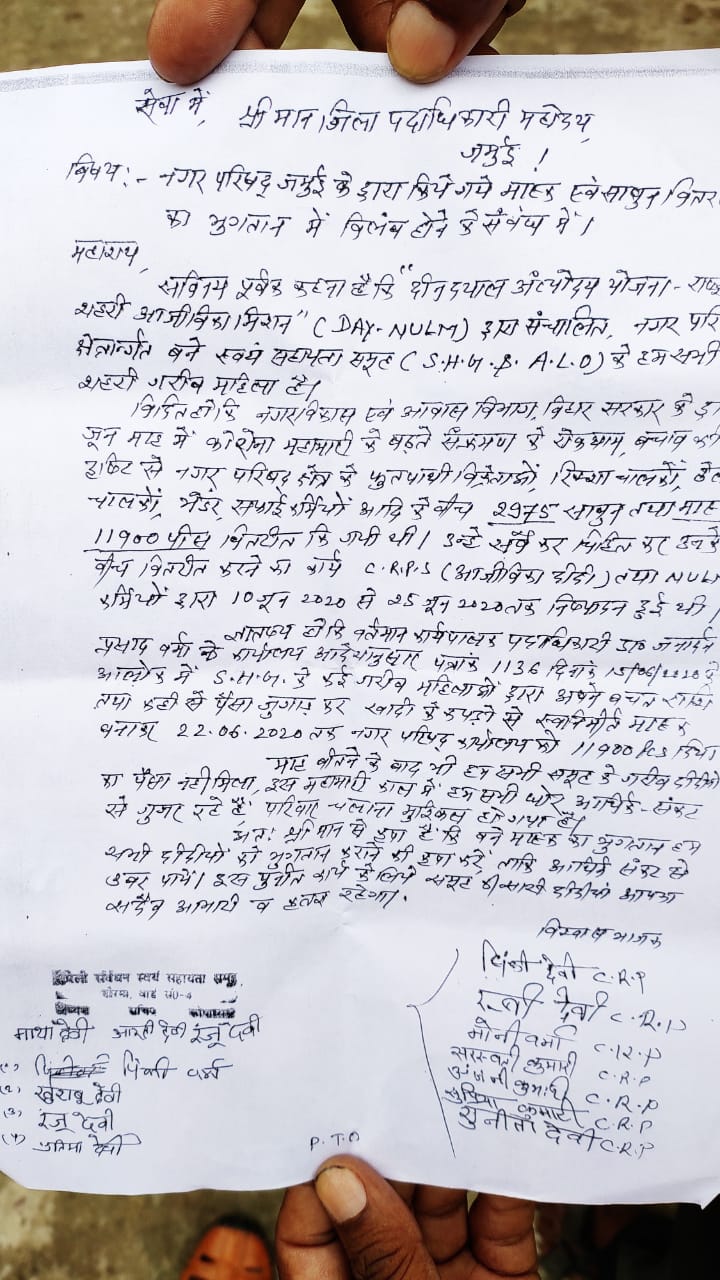 सेवा में,
श्री मान जिला पदाधिकारी महोदय,
जमुई !
विषय:- नगर परिषद् जमुई के द्वारा किये गये मास्क एवं साबुन वितर
का भुगतान में विलंब होने के संबंध में।
महाशय,
सविनय पूर्वक कहना है कि "दीनदयाल अंत्योदय योजना - राष्
शहरी आजीविका मिशन" (DAY-NULM) द्वारा संचालित, नगर परि
क्षेत्रान्तर्गत बने स्वयं सहायता समूह (S.H.G. & A.L.O) के हम सभी
शहरी गरीब महिला है।
विदित हो कि नगर विकास एवं आवास विभाग, बिहार सरकार के द्वा
जून माह में कोरोना महामारी के बढ़ते संक्रमण के रोकथाम, बचाव की
दृष्टि से नगर परिषद क्षेत्र के फुतपाथी विक्रेताओं, रिक्शा चालकों, ठे
चालकों, भेंडर, सफाई कर्मियों आदि के बीच 2975 साबुन तथा मास्
11900 पीस वितरीत कि गयी थी। उन्हे सर्वे कर चिन्हित कर उनके
बीच वितरीत करने का कार्य C.R.P.S (आजीविका दीदी) तथा NULM
कर्मियों द्वारा 10 जून 2020 से 25 जून 2020 तक निष्पादन हुई थी।
ज्ञातव्य हो कि वर्तमान कार्यपालक पदाधिकारी डा० जनार्दन
प्रसाद वर्मा के कार्यालय आदेशानुसार पत्रांक 1136 दिनांक 15/06/2020 के
आलोक में S.H.G. के कई गरीब महिलाओं द्वारा अपने बचत राशि
तथा कही से पैसा जुगाड़ कर खादी के कपड़ो से स्वनिर्मीत मास्क
बनाकर 22.06.2020 तक नगर परिषद् कार्यालय को 11900 Pcs दिया
माह बीतने के बाद भी हम सभी समूह के गरीब दीदीयों
का पैसा नही मिला, इस महामारी काल में हम सभी घोर आर्थिक संकट
से गुजर रहे हैं, परिवार चलाना मुश्किल हो गया है।
अतः श्री मान से कृपा है कि बने मास्क का भुगतान हम
सभी दीदीयों को भुगतान कराने की कृपा करें, ताकि आर्थिक संकट से
उबर पायें। इस पुनीत कार्य के लिये समूह की सारी दीदीयाँ आपका
सदैव आभारी व कृतज्ञ रहेगा।
विश्वास भाजक
पिंकी देवी C.R.P
देवी C.R.P
मोनी वर्मा C.R.P
सरस्वती कुमारी C.R.P
अंजनी कुमारी C.R.P
सुप्रिया कुमारी C.R.P
सुनीता देवी C.R.P
संवर्धन स्वयं सहायता समूह,
वार्ड सं०-4
सचिव कोषाध्यक्ष
माया देवी आरती देवी रंजू देवी
(1) पिंकी वर्मा
(2) देवी
(3) रंजू देवी
(4) देवी
P.T.O